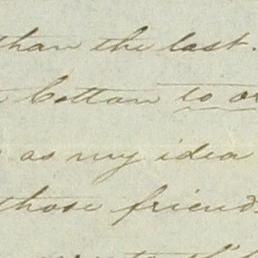 than the last.
Cotton to
as my idea
those friends